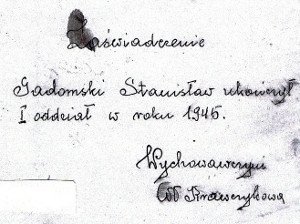 Zaświadczenie
Gadomski Stanisław ukończył
I oddział w roku 1945.
Wychowawczyni
Krawczykowa